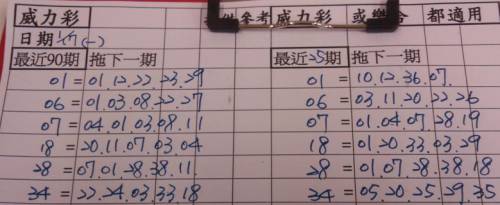 威力彩 供參考 威力彩 或樂合 都適用
日期 (一)
最近90期 拖下一期 最近25期 拖下一期
01 = 01.12.22.23.29 01 = 10.12.36.07.
06 = 01.03.08.22.27 06 = 03.11.20.22.26
07 = 04.01.03.08.11 07 = 01.04.07.28.19
18 = 20.11.07.03.04 18 = 01.20.33.03.29
28 = 07.01.28.38.11. 28 = 01.07.28.38.18
34 = 22.24.03.33.18 34 = 05.20.25.29.35